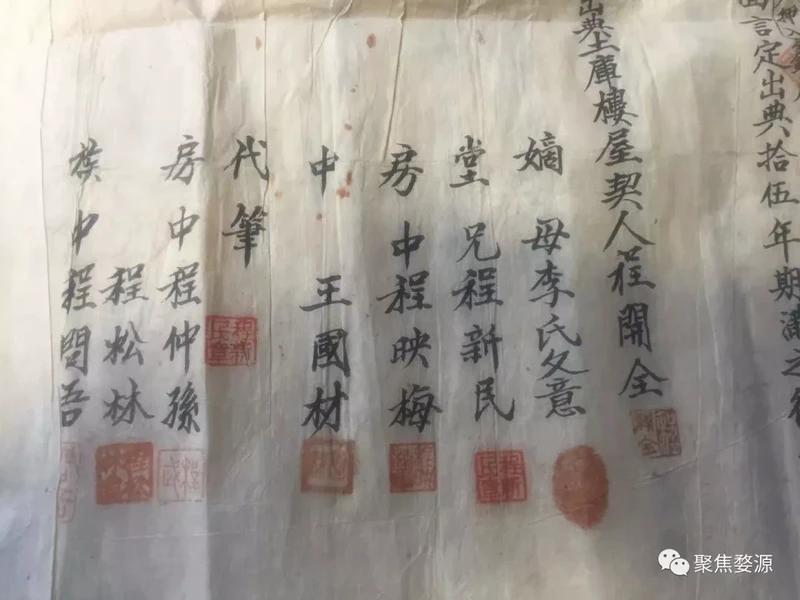 言定出典拾伍年期滿之
出典土庫樓屋契人程開全
嫡母李氏意
堂兄程新民
程新民章
房中程映梅
中 王國材
代筆
程新民章
房中程仲孫
程松林
族中程問吾
聚焦婺源